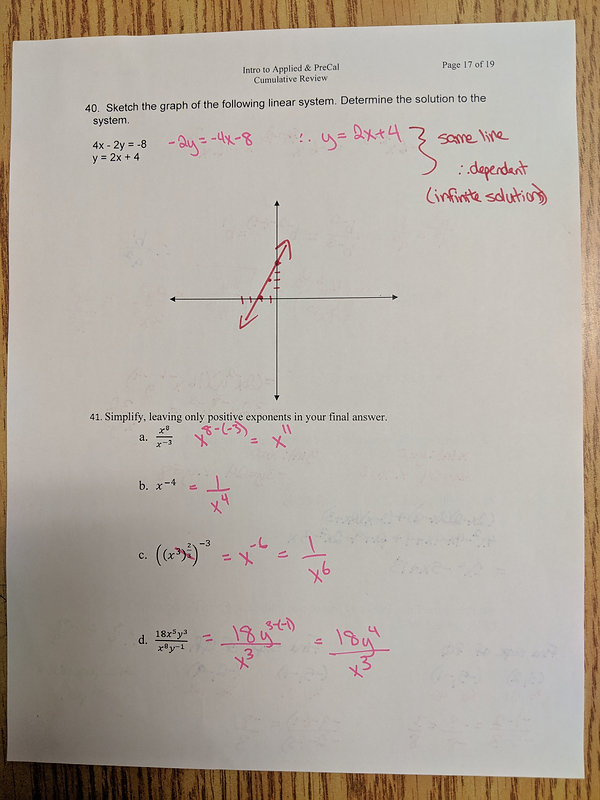 Intro to Applied & PreCal
Page 17 of 19
Cumulative Review
40. Sketch the graph of the following linear system. Determine the solution to the
system.
4x - 2y = -8
y = 2x + 4
-2y = -4x-8 ∴ y = 2x+4 } same line
∴ dependant
(infinite solutions)
41. Simplify, leaving only positive exponents in your final answer.
a. x⁸/x⁻³ x⁸⁻⁽⁻³⁾ = x¹¹
b. x⁻⁴ = 1/x⁴
c. ((x³)^(2/3))⁻³ = x⁻⁶ = 1/x⁶
d. 18x⁵y³/x⁸y⁻¹ = 18y³⁻⁽⁻¹⁾/x³ = 18y⁴/x³